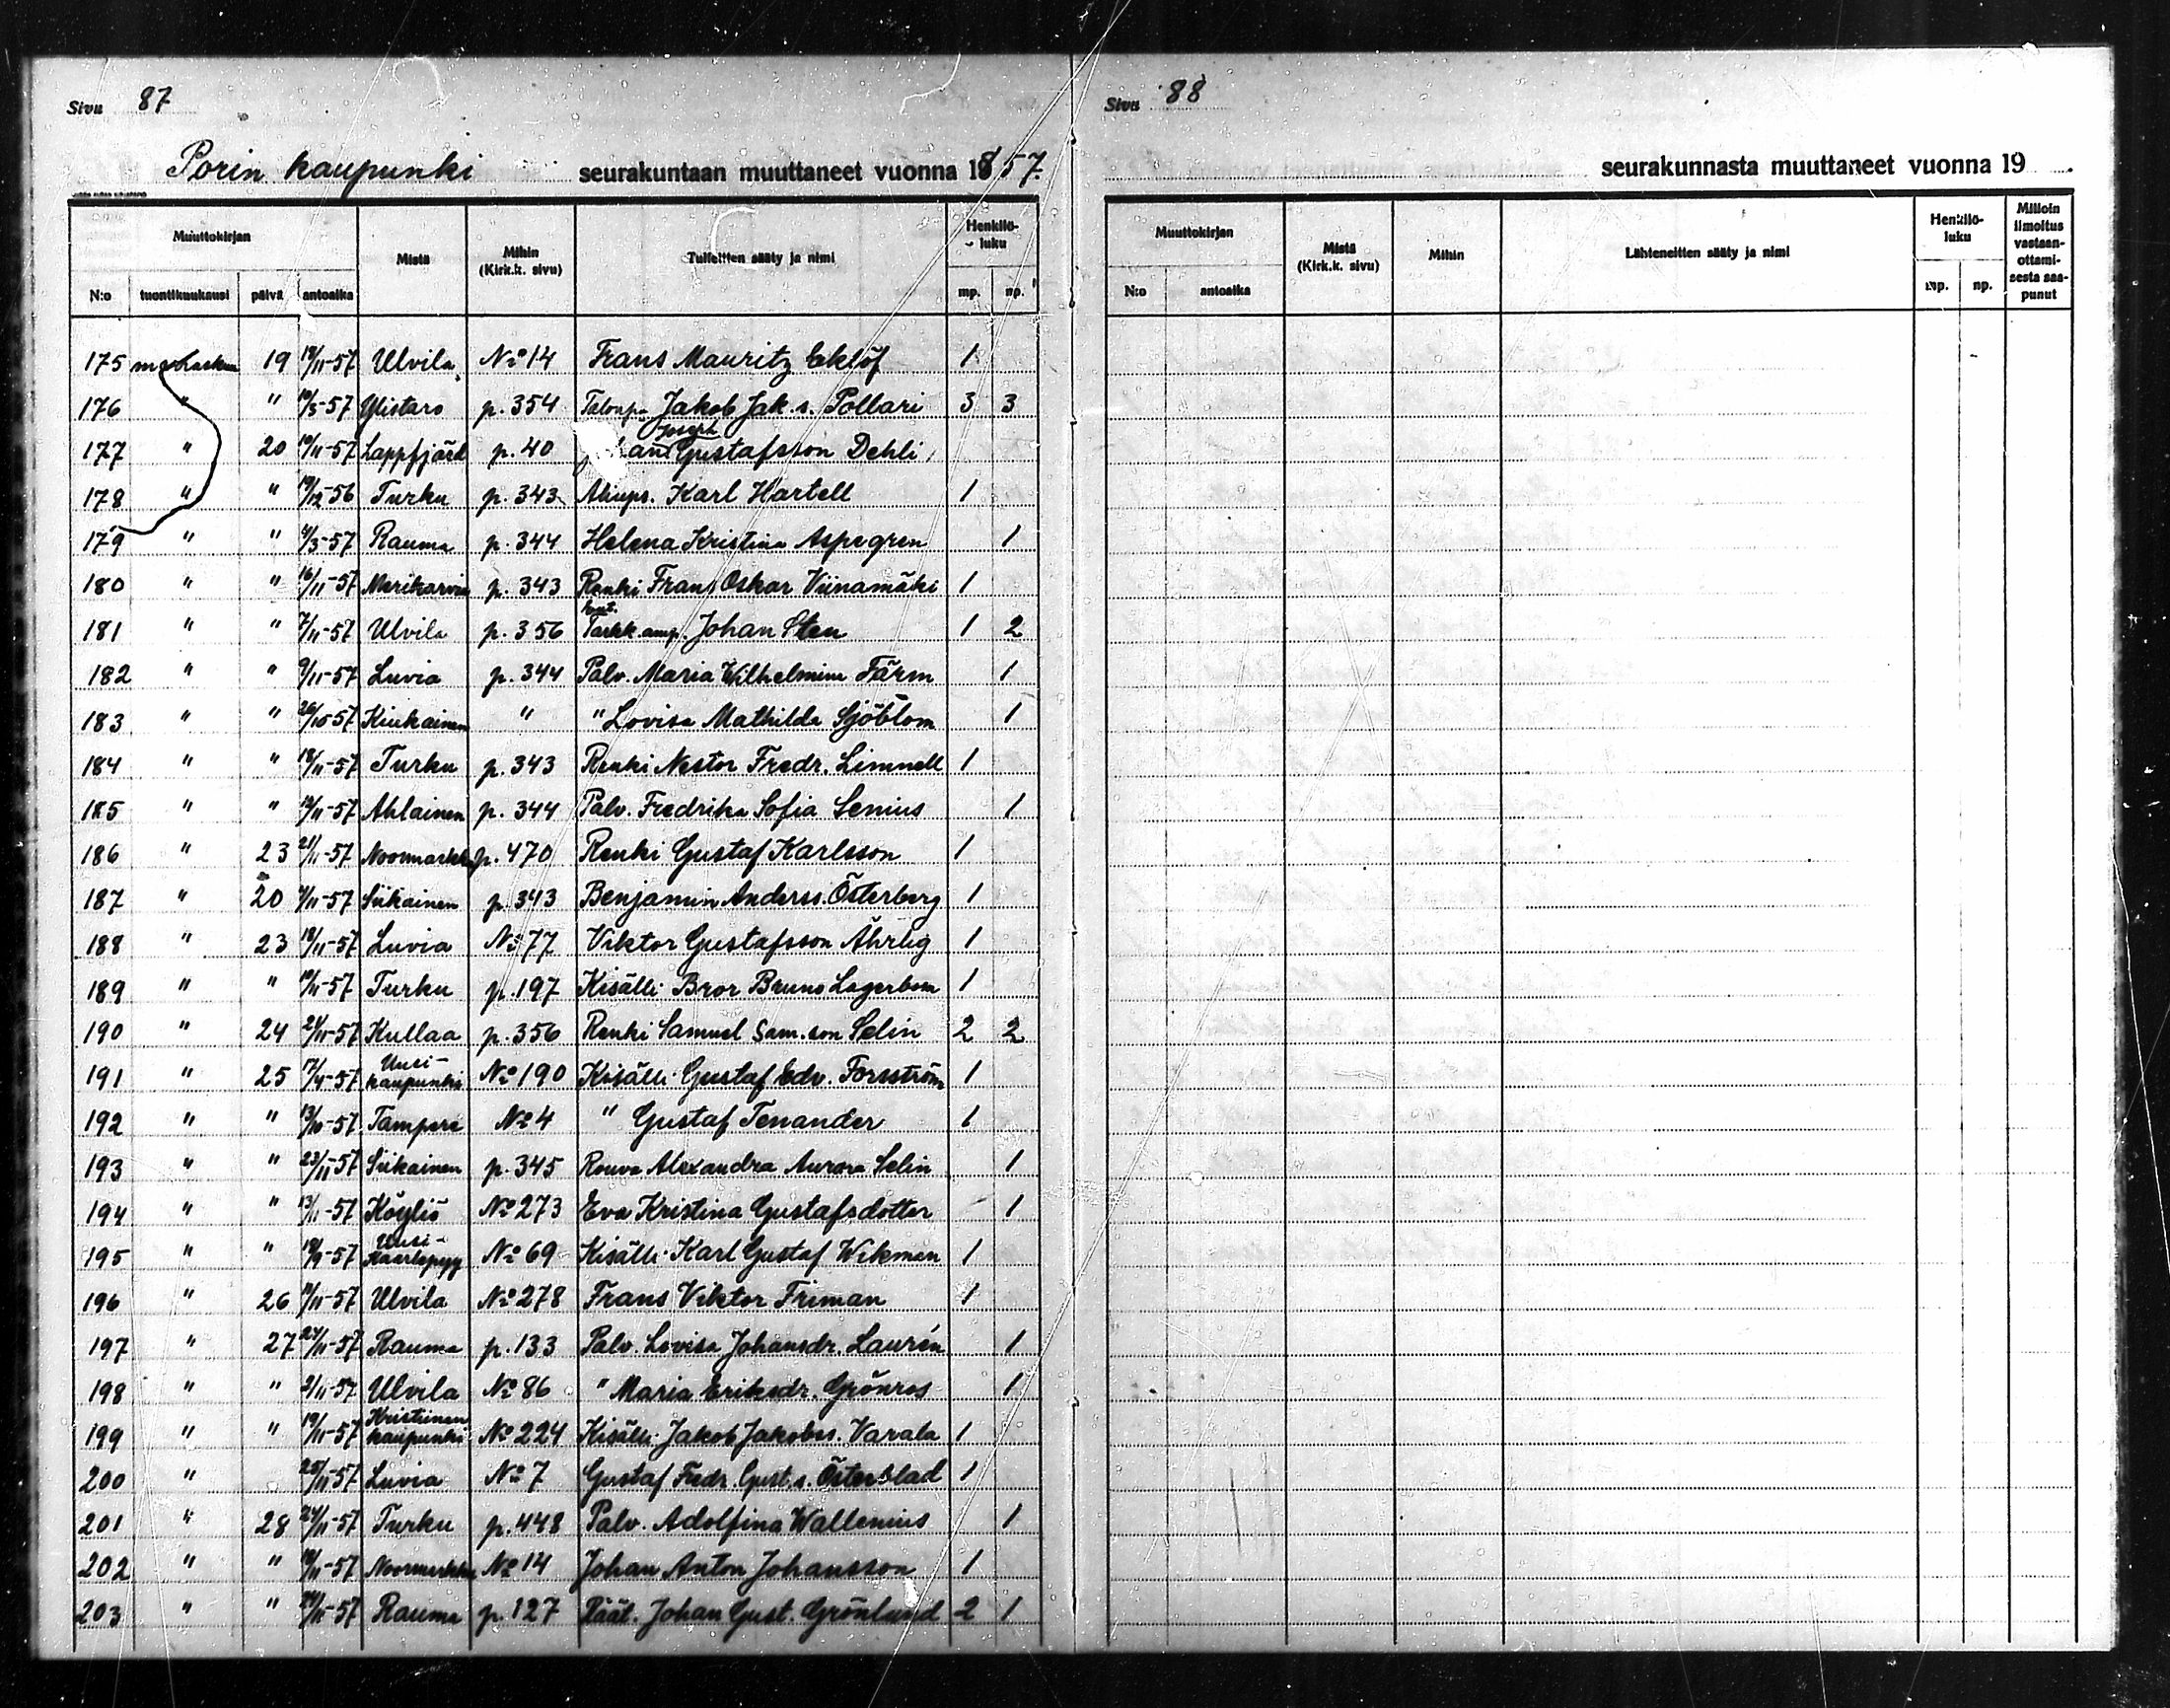 Sivu 87
Porin kaupunki seurakuntaan muuttaneet vuonna 1857.
Muuttokirjan
Mistä
Mihin (Kirk.k. sivu)
Tulleitten sääty ja nimi
Henkilö-luku
N:o tuontikuukausi päivä antoaika mp. np.
175 marraskuu 19 19/11-57 Ulvila No 14 Frans Mauritz Eklöf 1
176 " " 10/3-57 Ylistaro p. 354 Talonp. Jakob Jak.s. Pollari 3 3
177 " 20 10/11-57 Lappfjärd p. 40 Josef Gustafsson Dehli
178 " " 19/12-56 Turku p. 343 Aliups. Karl Hartell 1
179 " " 4/3-57 Rauma p. 344 Helena Kristina Aspegren 1
180 " " 16/11-57 Merikarvia p. 343 Renki Frans Oskar Viinamäki 1
181 " " 7/11-57 Ulvila p. 356 Tarkk.amp. Johan Sten 1 2
182 " " 9/11-57 Luvia p. 344 Palv. Maria Wilhelmina Färm 1
183 " " 26/10-57 Kiukainen " " Lovisa Mathilda Sjöblom 1
184 " " 18/11-57 Turku p. 343 Renki Nestor Fredr. Limnell 1
185 " " 12/11-57 Ahlainen p. 344 Palv. Fredrika Sofia Senius 1
186 " 23 21/11-57 Noormarkku p. 470 Renki Gustaf Karlsson 1
187 " 20 4/11-57 Siikainen p. 343 Benjamin Anderss. Österberg 1
188 " 23 18/11-57 Luvia No 77 Viktor Gustafsson Ährlig 1
189 " " 10/11-57 Turku p. 197 Kisälli Bror Bruno Lagerbom 1
190 " 24 21/11-57 Kullaa p. 356 Renki Samuel Sam.son Selin 2 2
191 " 25 17/4-57 Uusi-kaupunki No 190 Kisälli Gustaf Edv. Forsström 1
192 " " 13/10-57 Tampere No 4 " Gustaf Tenander 1
193 " " 23/11-57 Siikainen p. 345 Rouva Alexandra Aurora Selin 1
194 " " 13/11-57 Köyliö No 273 Eva Kristina Gustafsdotter 1
195 " " 19/9-57 Uusi-Kaarlepyy No 69 Kisälli Karl Gustaf Wikman 1
196 " 26 11/11-57 Ulvila No 278 Frans Viktor Friman 1
197 " 27 24/11-57 Rauma p. 133 Palv. Lovisa Johansdr. Laurén 1
198 " " 2/11-57 Ulvila No 86 " Maria Eriksdr. Grönros 1
199 " " 19/11-57 Kristiinan kaupunki No 224 Kisälli Jakob Jakobss. Varala 1
200 " 25/11-57 Luvia No 7 Gustaf Fredr. Gust.s. Österblad 1
201 " 28 24/11-57 Turku p. 448 Palv. Adolfina Wallenius 1
202 " " 18/11-57 Noormarkku No 14 Johan Anton Johansson 1
203 " " 24/11-57 Rauma p. 127 Räät. Johan Gust. Grönlund 2 1
Sivu 88
seurakunnasta muuttaneet vuonna 19 .
Muuttokirjan
Mistä (Kirk.k. sivu)
Mihin
Lähteneitten sääty ja nimi
Henkilö-luku
Milloin ilmoitus vastaan-ottami-sesta saa-punut
N:o antoaika mp. np.